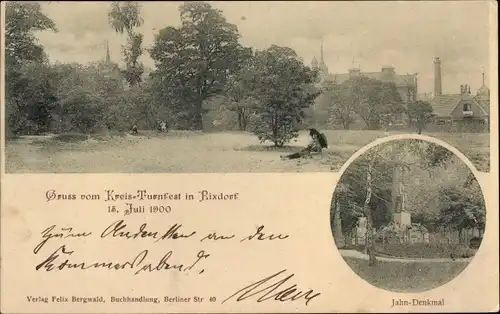 Gruss vom Kreis-Turnfest in Rixdorf
15. Juli 1900
Zum Andenken an den
Kommersabend.
Verlag Felix Bergwald, Buchhandlung, Berliner Str 40
Jahn-Denkmal